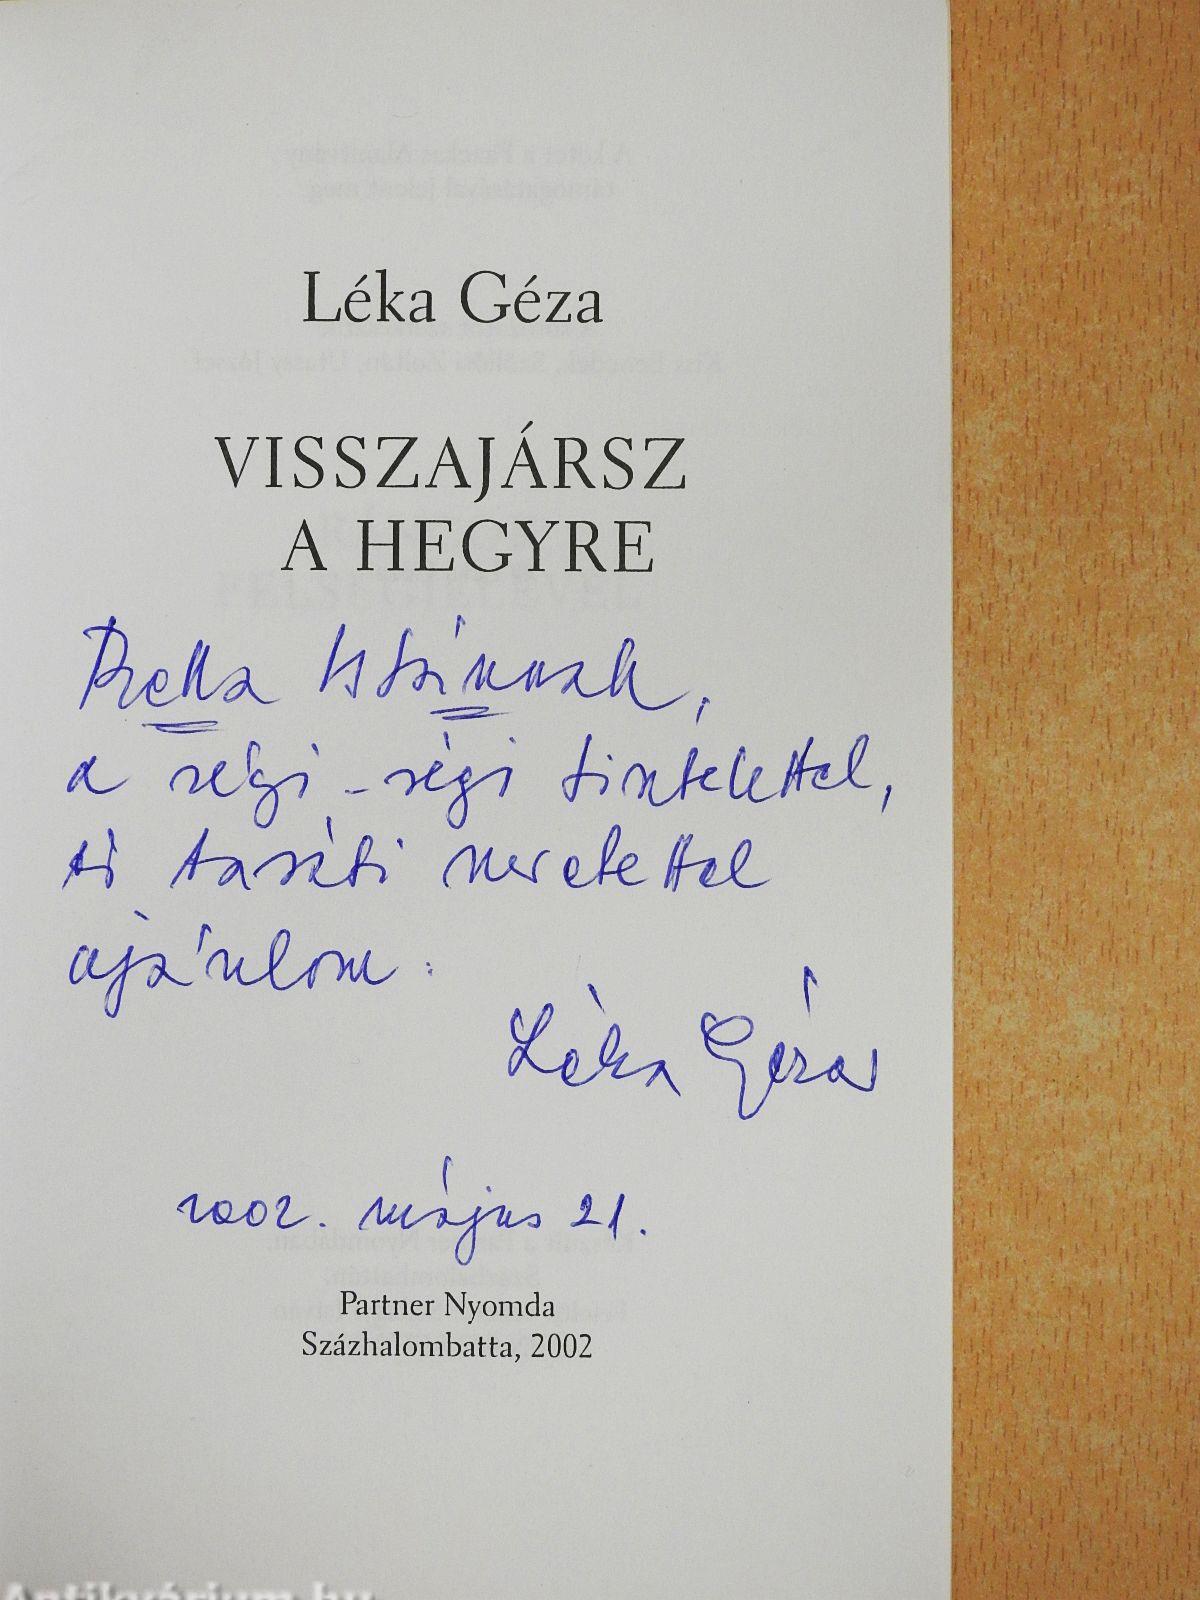 Léka Géza
VISSZAJÁRSZ
A HEGYRE
Istvánnak,
a régi-régi tisztelettel,
és baráti szeretettel
ajánlom:
Léka Géza
2002. május 21.
Partner Nyomda
Százhalombatta, 2002
Antikvárium.hu